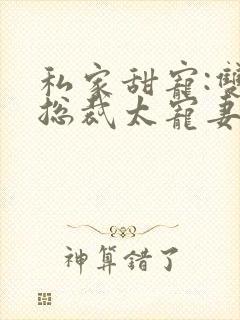 私家甜寵:雙
總裁太寵妻
神算錯了